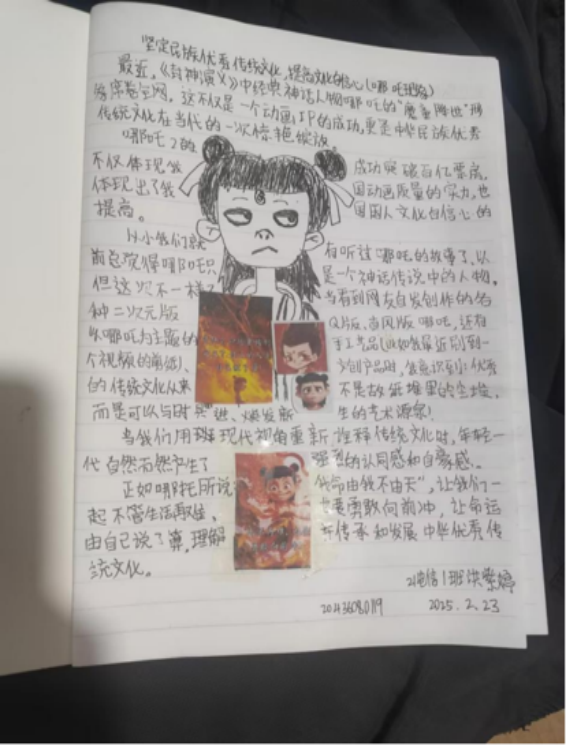 坚定民族优秀传统文化,提高文化自信心(哪吒现象)
最近,《封神演义》中经典神话人物哪吒的"魔童降世"形
席卷全网,这不仅是一个动画IP的成功,更是中华民族优秀
传统文化在当代的一次惊艳绽放。
哪吒2的 成功突破百亿票房,
不仅体现我 国动画质量的实力,也
体现出了我 国国人文化自信心的
提高。
从小我们就 有听过哪吒的故事了,以
前总觉得哪吒只 是一个神话传说中的人物,
但这次不一样了 当看到网友自发创作的各
种二次元版 Q版、古风版哪吒,还有
以哪吒为主题的 手工艺品(比如我最近刷到一
个视频的剪纸)、 文创产品时,我意识到:优秀
的传统文化从来 不是故纸堆里的
而是可以与时共进、焕发新 生的艺术源泉!
当我们用现代视角重新诠释传统文化时,年轻一
代自然而然产生了 强烈的认同感和自豪感。
正如哪吒所说 我命由我不由天",让我们一
起不管生活 要勇敢向前冲,让命运
由自己说了算,理解 并传承和发展中华优秀传
统文化。
21电信1班洪
2025.2.23